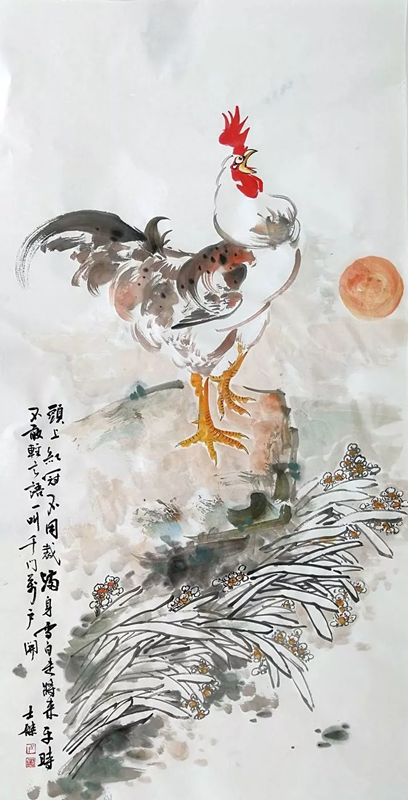 頭上紅冠不用裁滿身雪白走將來平時
不敢輕言語一叫千门萬户開
士傑